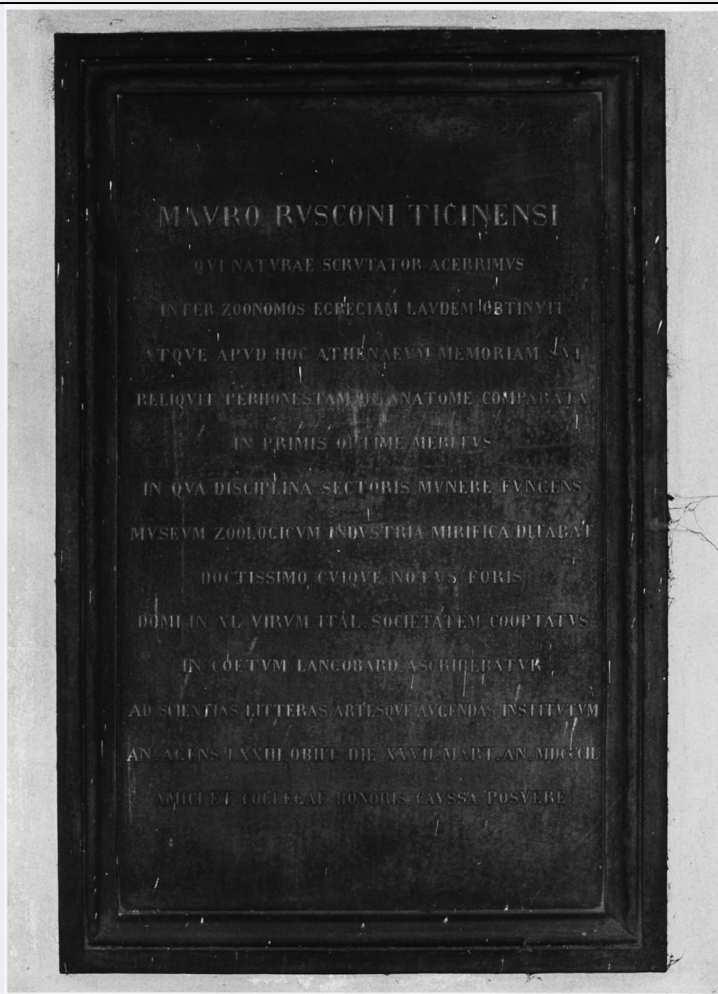 MAVRO RVSCONI TICINENSI
QVI NATVRAE SCRVTATOR ACERRIMVS
INTER ZOONOMOS EGREGIAM LAVDEM OBTINVIT
ATQVE APVD HOC ATHENAEVM MEMORIAM SVI
RELIQVIT PERHONESTAM DE ANATOME COMPARATA
IN PRIMIS OPTIME MERITVS
IN QVA DISCIPLINA SECTORIS MVNERE FVNGENS
MVSEVM ZOOLOGICVM INDVSTRIA MIRIFICA DITABAT
DOCTISSIMO CVIQVE NOTVS FORIS
DOMI IN XL VIRVM ITAL. SOCIETATEM COOPTATVS
IN COETVM LANGOBARD ASCRIBEBATVR
AD SCIENTIAS LITTERAS ARTESQVE AVGENDAS INSTITVTVM
AN. AGENS LXXIII OBIIT DIE XXVII MART. AN.
AMICI ET COLLEGAE HONORIS CAVSSA POSVERE